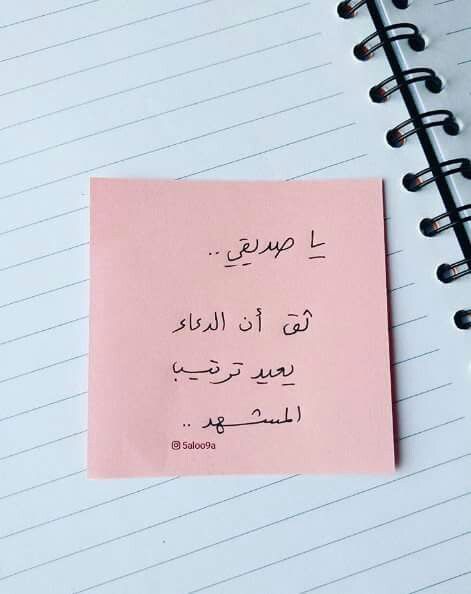 يا صديقي ..
ثق أن الدعاء
يعيد ترتيب
المشهد ..
5aloo9a